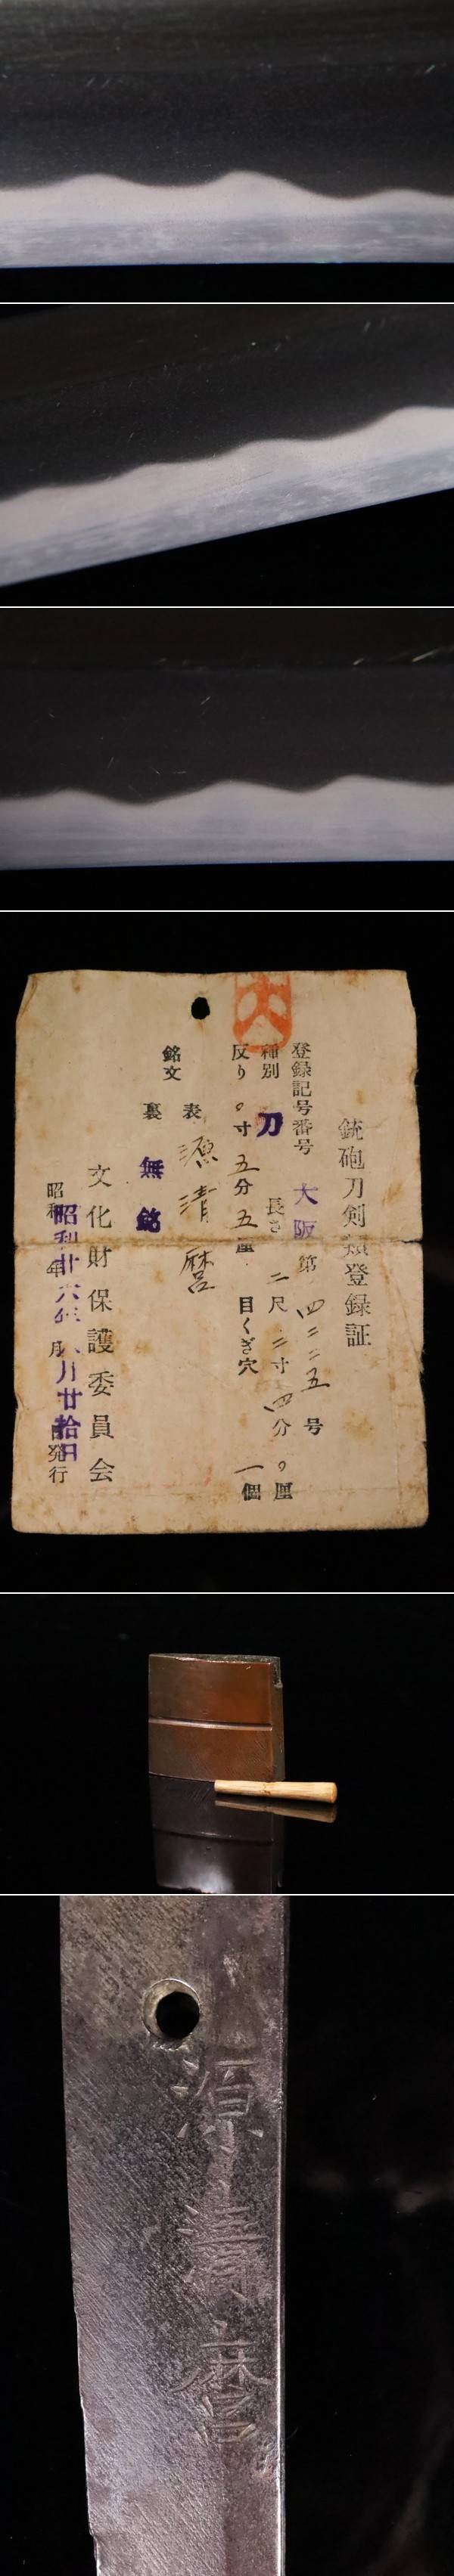 銃砲刀剣類登録証
登録記号番号 大阪 第 四二二五 号
種別 刀 長さ 二尺 二寸 四分 〇厘
反り 〇寸 五分 五厘 目くぎ穴 一個
銘文 表 源清麿
裏 無銘
文化財保護委員会
昭和廿六年 月廿拾日発行
源清麿